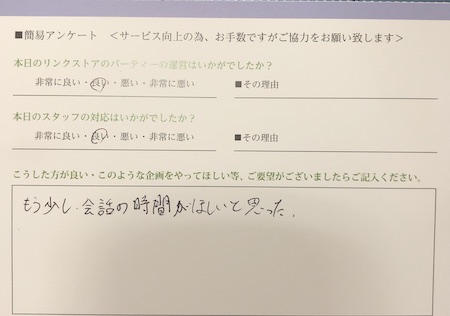 ■簡易アンケート ＜サービス向上の為、お手数ですがご協力をお願い致します＞
本日のリンクストアのパーティーの運営はいかがでしたか？
非常に良い・良い・悪い・非常に悪い ■その理由
本日のスタッフの対応はいかがでしたか？
非常に良い・良い・悪い・非常に悪い ■その理由
こうした方が良い・このような企画をやってほしい等、ご要望がございましたらご記入ください。
もう少し、会話の時間がほしいと思った。